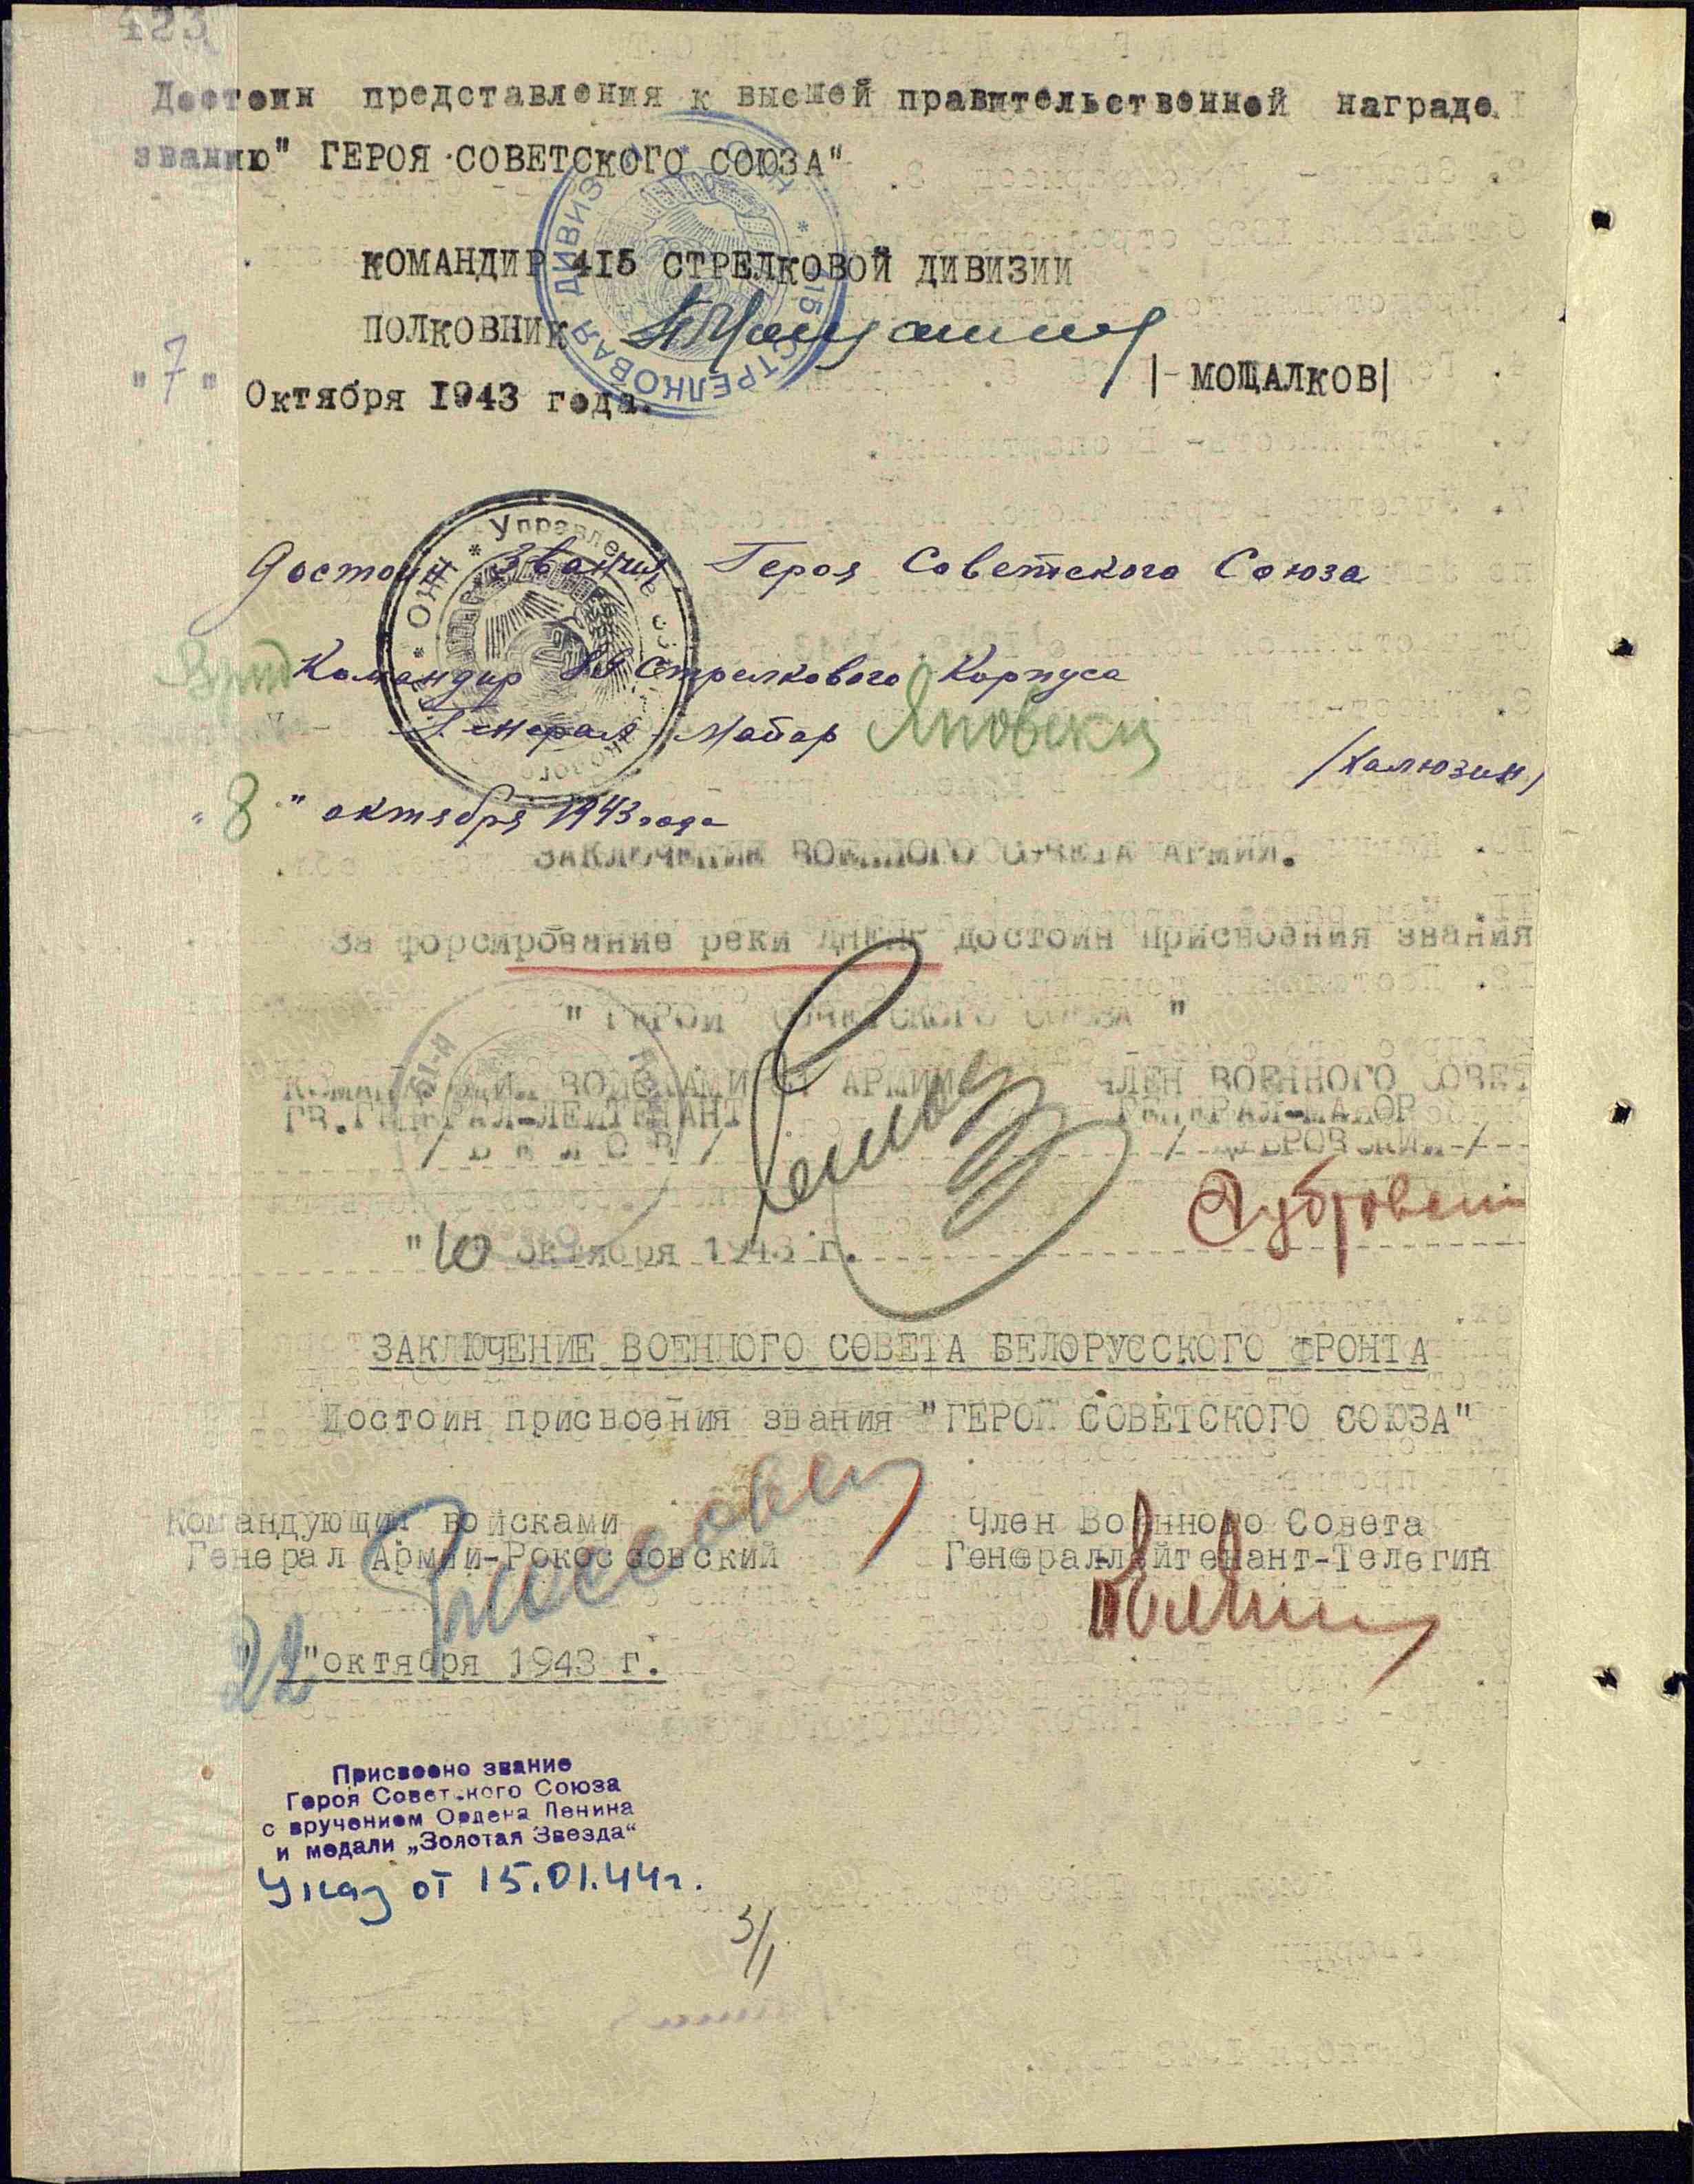 423
Достоин представления к высшей правительственной награде
званию" ГЕРОЯ СОВЕТСКОГО СОЮЗА"
КОМАНДИР 415 СТРЕЛКОВОЙ ДИВИЗИИ
ПОЛКОВНИК
/-МОЩАЛКОВ/
"7" Октября 1943 года.
Достоин Звания Героя Советского Союза
Врид Командир Стрелкового Корпуса
Генерал-Майор Яновский
/Халюзин/
"8" октября 1943 года
ЗАКЛЮЧЕНИЕ ВОЕННОГО СОВЕТА АРМИИ.
За форсирование реки ДНЕПР достоин присвоения звания
" ГЕРОЙ СОВЕТСКОГО СОЮЗА "
КОМАНДУЮЩИЙ ВОЙСКАМИ 61 АРМИИ ЧЛЕН ВОЕННОГО СОВЕТ
ГВ.ГЕНЕРАЛ-ЛЕЙТЕНАНТ ГЕНЕРАЛ-МАЙОР
/ БЕЛОВ / / ДУБРОВСКИЙ /
"10 октября 1943 г.
ЗАКЛЮЧЕНИЕ ВОЕННОГО СОВЕТА БЕЛОРУССКОГО ФРОНТА
Достоин присвоения звания "ГЕРОЙ СОВЕТСКОГО СОЮЗА"
Командующий войсками Член Военного Совета
Генерал Армии-Рокоссовский Генераллейтенант-Телегин
"22"октября 1943 г.
Присвоено звание
Героя Советского Союза
с вручением Ордена Ленина
и медали „Золотая Звезда“
Указ от 15.01.44г.
3/1